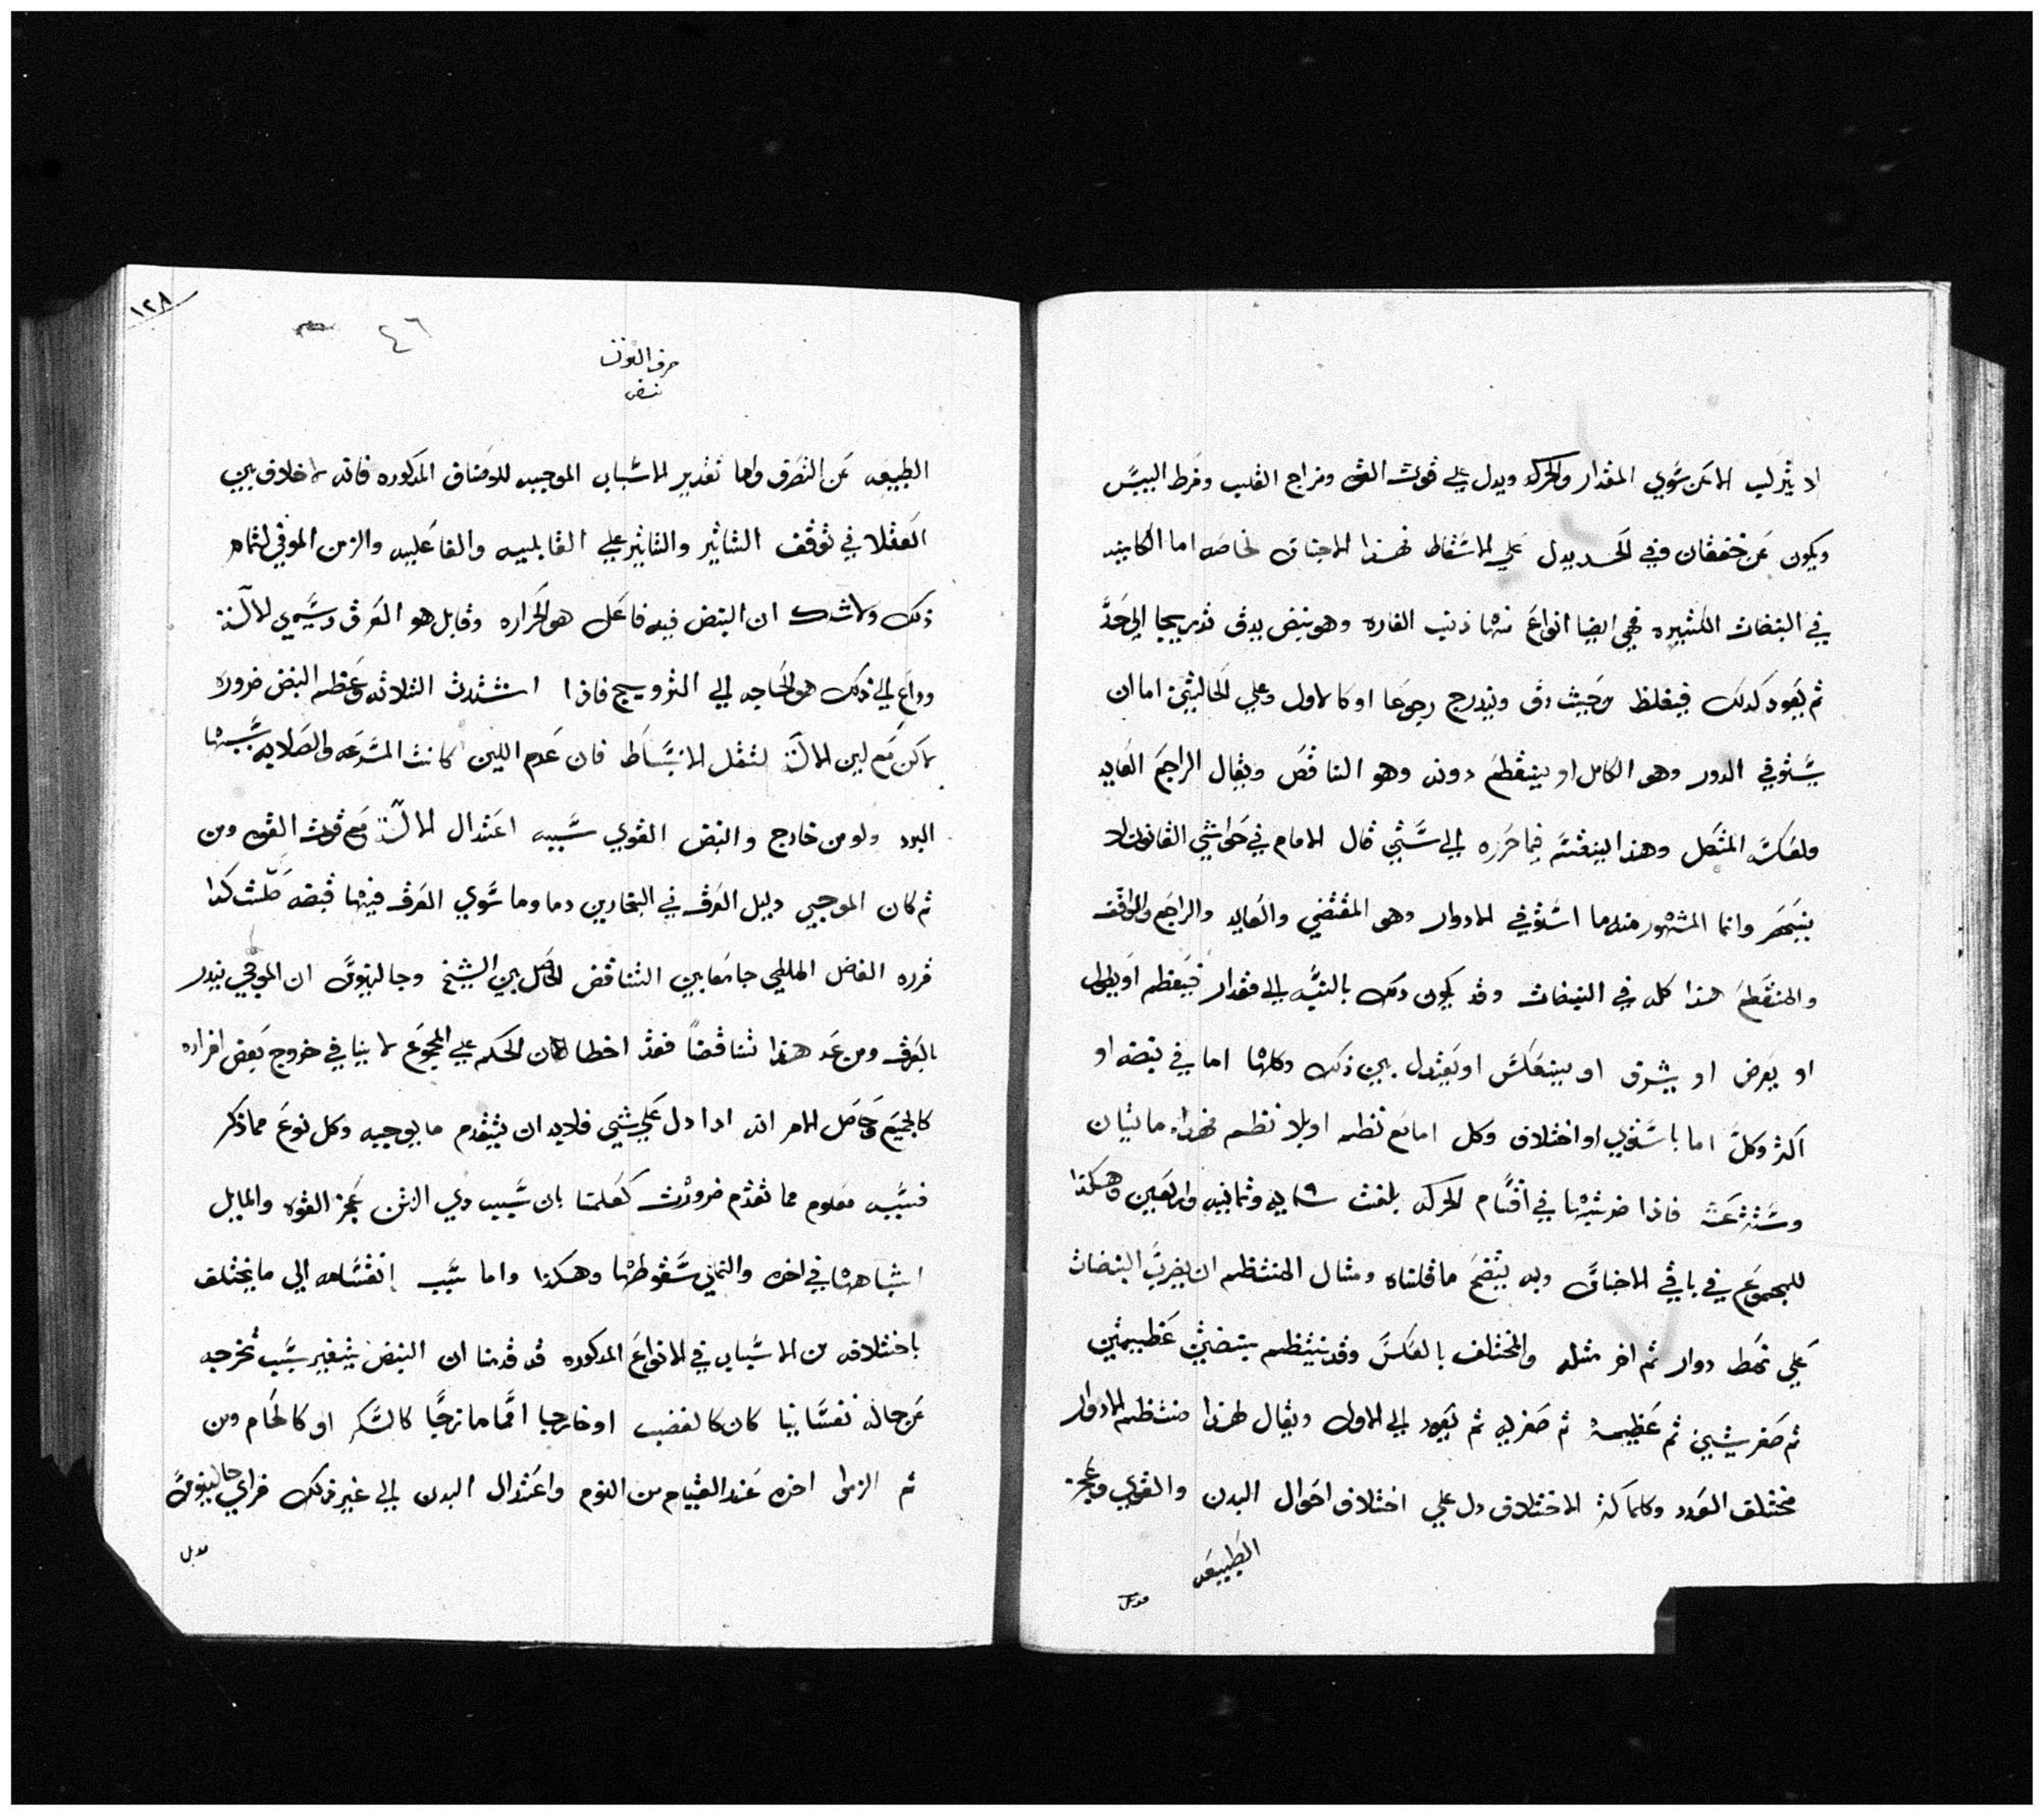 لا يتركب الا عن سوي المقدار والحركه ويدل علي قوت القوي ومزاج القلب وفرط اليبس
ويكون عن خفقان وفي الحمد يدل علي الاسقاط فهذا الاجناق لخاصه اما الكاينه
في النبضات الكثيره فهي ايضا انواع منها ذنب الفاره وهو نبض يدق تدريجيا الي حد
ثم يعود كدلك فيغلظ من حيث دق ويتدرج رجوعا او كالاول وعلي الحالتين اما ان
يستوفي الدور وهو الكامل او ينقطع دونه وهو الناقص ويقال الراجع العايد
ولعكسه المتصل وهذا لينقسم فيما حرره الي ستين قال الامام في حواشي القانون لا
ينحصر وانما المشهور منه ما استوفي الادوار وهو المقتضي والعايد والراجع والواقف
والمنقطع هذا كله في النبضات وقد يكون دلك بالنسبه الي مقدار فيعظم او يطول
او يعرض او يشرق او ينعكس او يعتدل بين ذلك وكلها اما في نبضه او
اكثر وكل اما باستوي او اختلاف وكل اما مع نظم او بلا نظم فهذه مايتان
وستة عشر فاذا ضربتها في اقسام الحركه بلغت ستمايه وثمانيه واربعين وهكذا
للمجموع في باقي الاجناق وبه يتضح ما قلناه ومثال المنتظم ان يضرب النبضات
علي نمط دوار ثم اخر مثله والمختلف بالعكس وقد ينتظم بنبضتين عظيمتين
ثم صغر شيين ثم عظيمة ثم صغريه ثم يعود الي الاول ويقال لهذا منتظم الادوار
مختلف العدد وكلما كثر الاختلاف دل علي اختلاف احوال البدن والقوي وعجز
الطبيعه
١٢٨
٤٦
حرف النون
نبض
الطبيعه عن التصرف واما تقدير الاسباب الموجبه للاوصاف المذكوره فانه لا خلاف بين
العقلا في توقف التاثير والتاثير علي القابليه والفاعليه والزمن الموفي لتمام
ذلك ولا شك ان النبض فيه فاعل هو الحراره وقابل هو العرق ويسمي الالة
وداع الي ذلك هو الحاجه الي الترويح فاذا اشتدت الثلاثه عظم النبض ضرورة
لاكن مع لين الالة لثقل الانبساط فان عدم اللين كانت السرعه والصلابه سببها
البرد ولو من خارج والنبض القوي سببه اعتدال الالة مع قوت القوي ومن
ثم كان الموجي دليل العرق في البخارين دما وما سوي العرق فيها قبضه كدا
قرره الفاضل الملطي جامعا بين التناقض الحاصل بين الشيخ وجالينوس ان الموجي ينذر
بالعرق ومن عد هذا تناقضا فقد اخطا لان الحكم علي المجموع لا ينافي خروج بعض افراده
كالجميع وحاصل الامر انه ادا دل علي شيي فلابد ان يتقدم ما يوجبه وكل نوع مما ذكر
فسببه معلوم مما تقدم ضرورت كعلمنا بان سبب دي الفترة عجز القوه والمايل
انتباهها في اخره والنملي سقوطها وهكذا واما سبب انقسامه الي ما يختلف
باختلافه من الاسباب في الانواع المدكوره قد قدمنا ان النبض يتغير بسبب تخرجه
عن حاله نفسانيا كان كالغضب او خارجيا اما مازجيا كالسكر او كالحمام ومن
ثم الزموا اخذه عند القيام من النوم واعتدال البدن الي غير ذلك فراي جالينوس